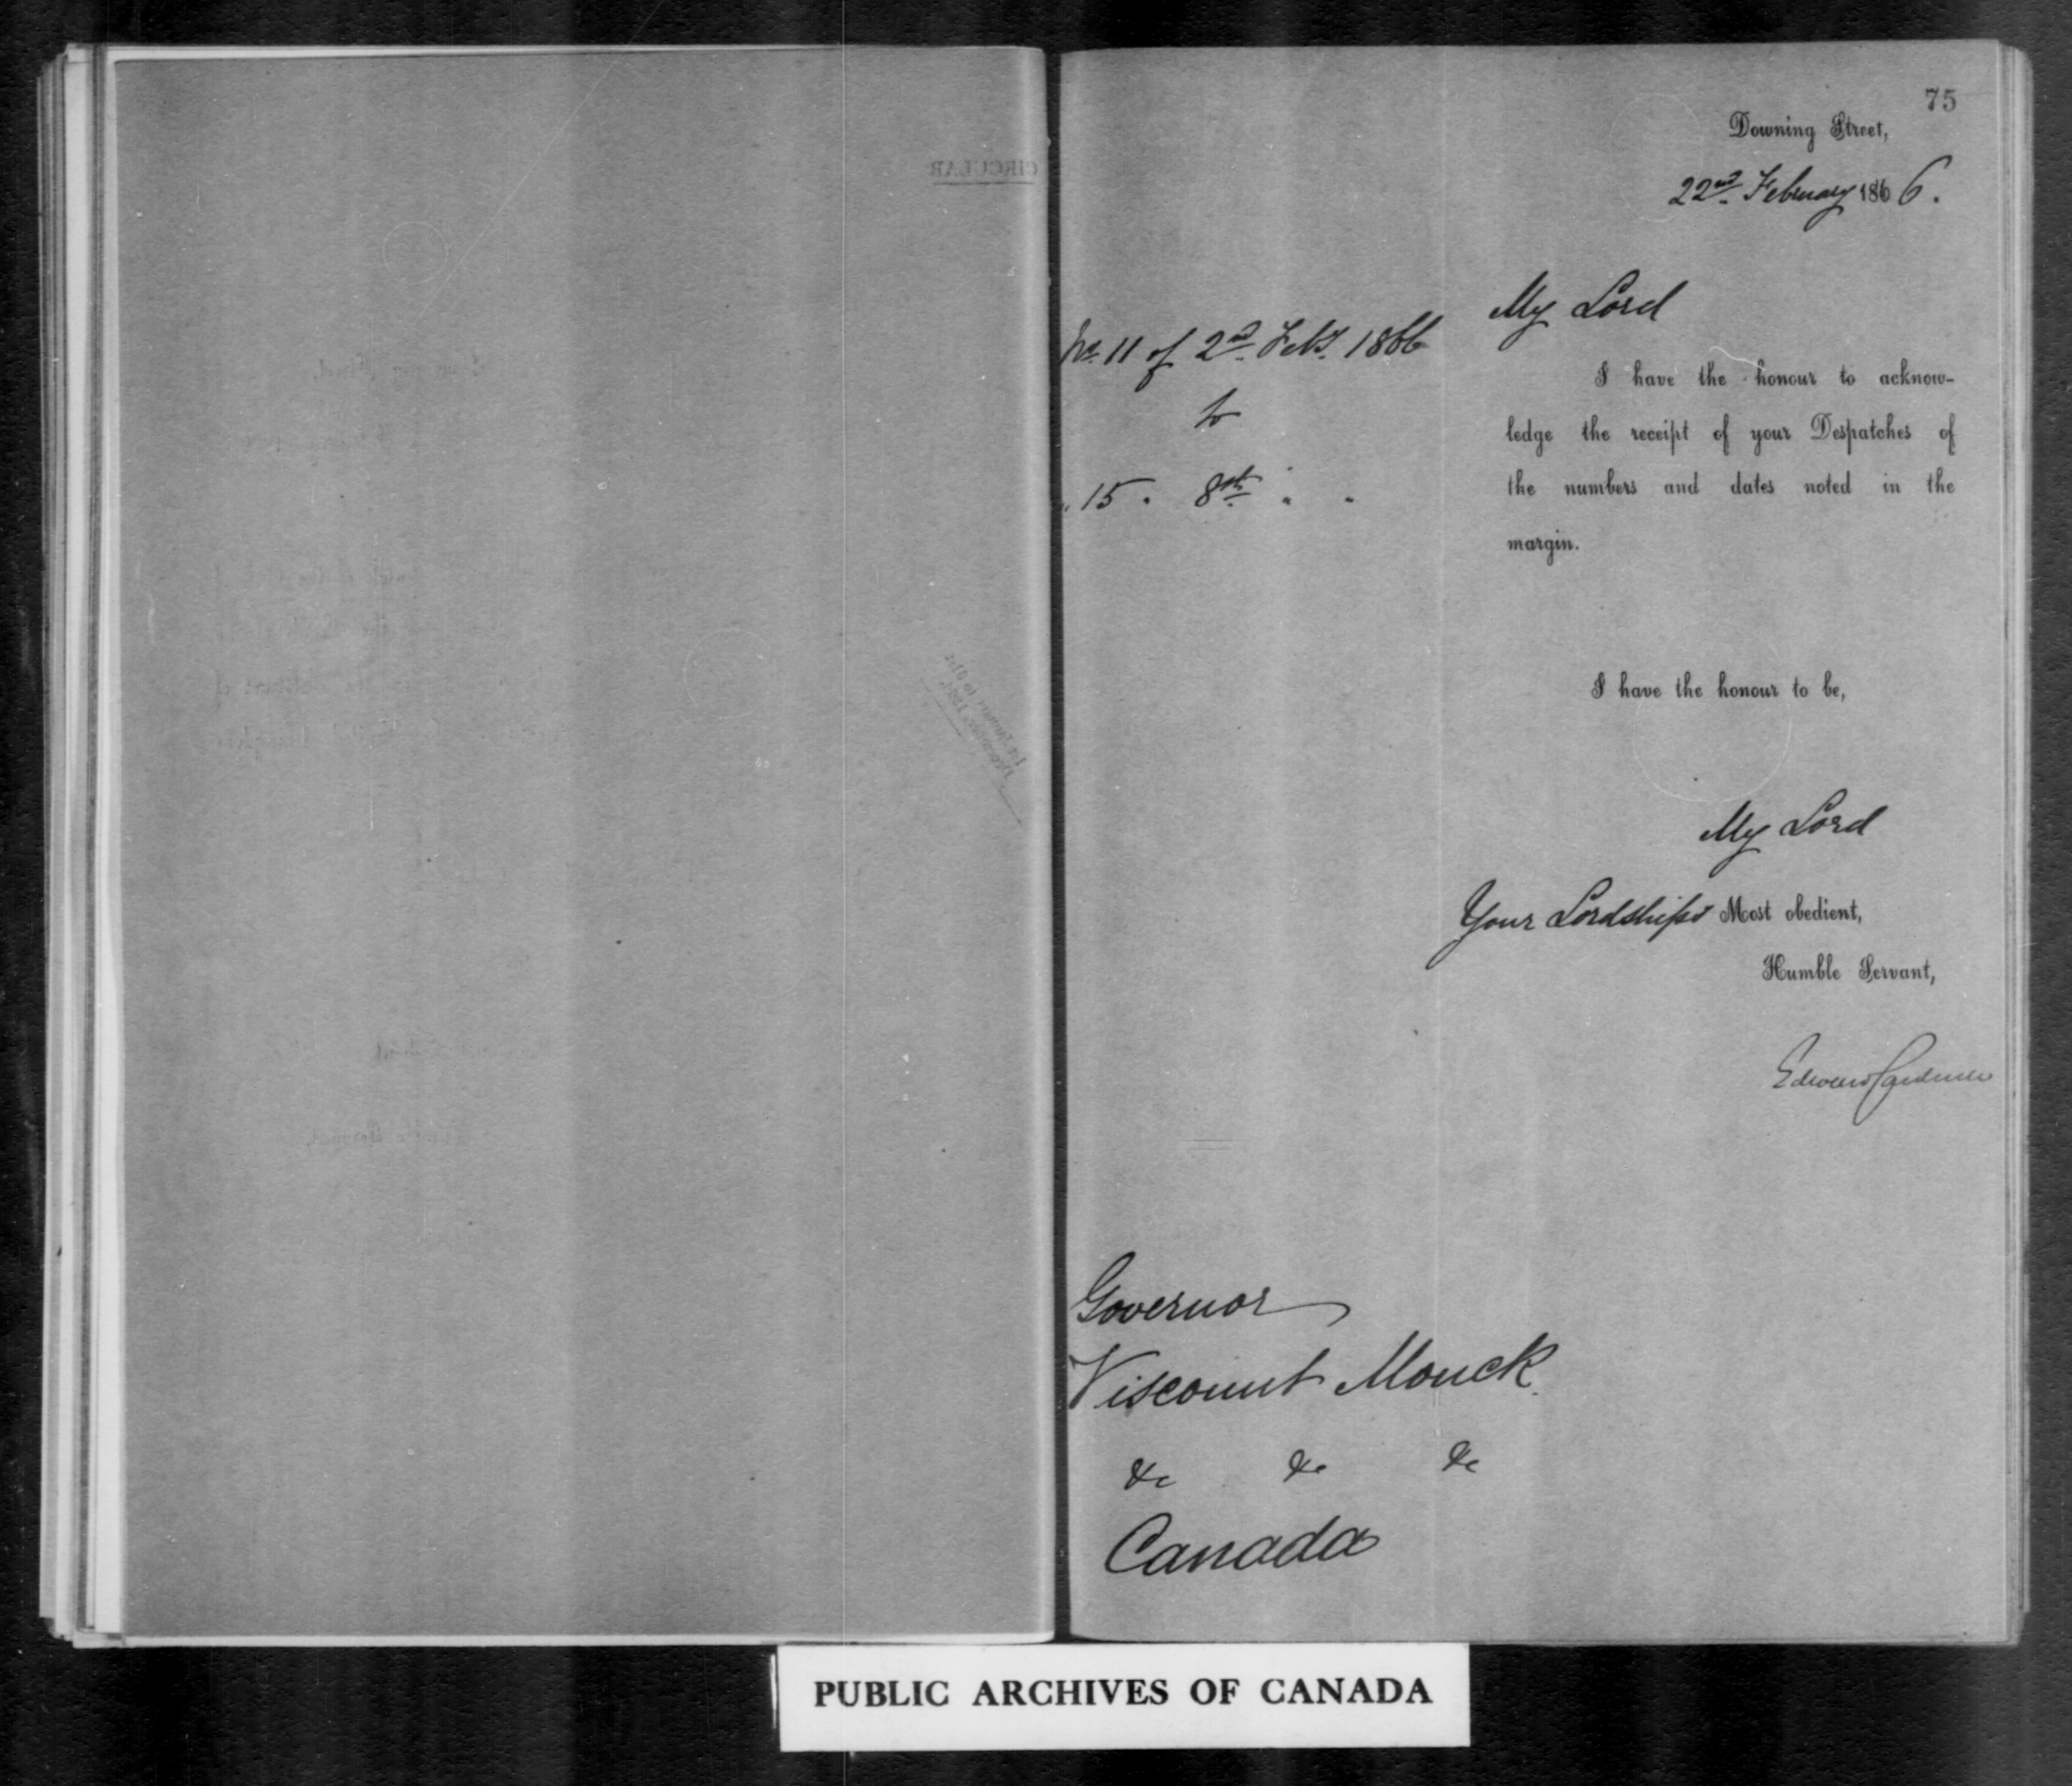 75
Downing Street,
22nd. February 1866.
My Lord
No. 11 of 2nd. Feby. 1866
to
" 15 " 8th " "
I have the honour to acknow-
ledge the receipt of your Despatches of
the numbers and dates noted in the
margin.
I have the honour to be,
My Lord
Your Lordships Most obedient,
Humble Servant,
Edward Cardwell
Governor
Viscount Monck
&c &c &c
Canada
CIRCULAR
PUBLIC ARCHIVES OF CANADA